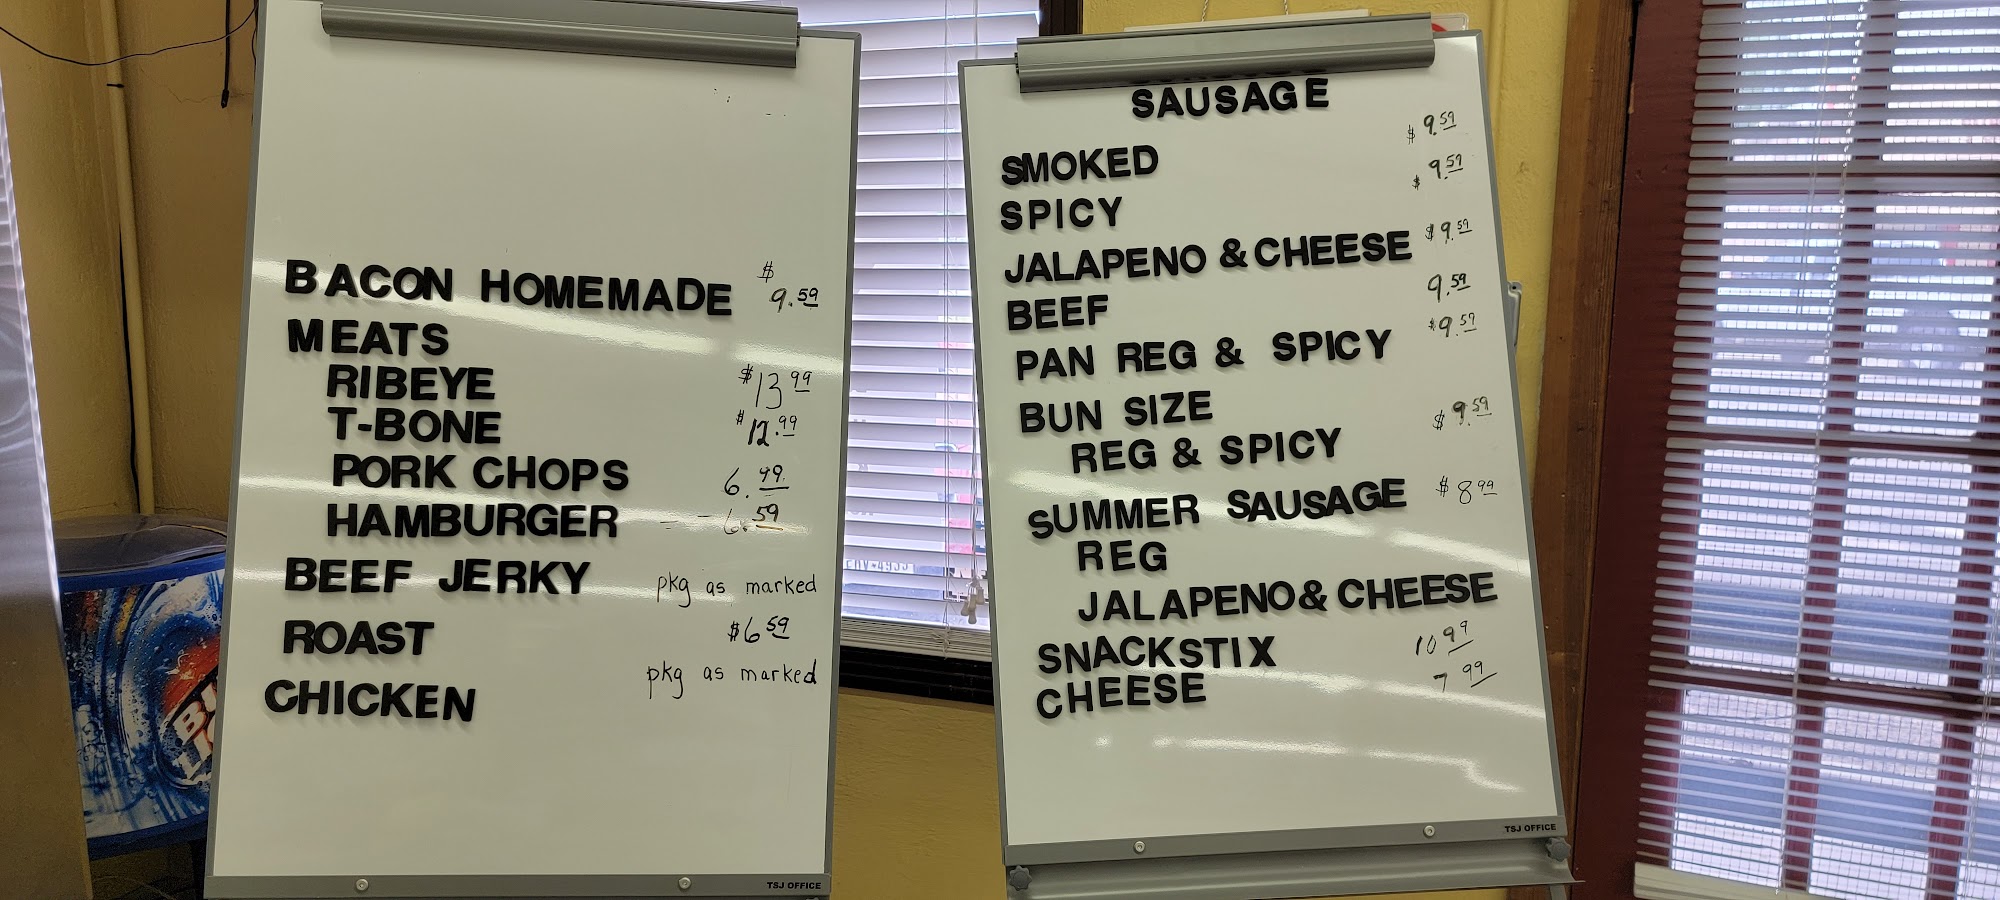 BACON HOMEMADE $ 9.59
MEATS
RIBEYE $13 99
T-BONE $12.99
PORK CHOPS 6.99
HAMBURGER 6.59
BEEF JERKY pkg as marked
ROAST $6 59
CHICKEN pkg as marked
TSJ OFFICE
SAUSAGE
SMOKED $9.59
SPICY $9.59
JALAPENO & CHEESE $9.59
BEEF 9.59
PAN REG & SPICY $9.59
BUN SIZE
REG & SPICY $9.59
SUMMER SAUSAGE $8 99
REG
JALAPENO & CHEESE
SNACKSTIX 10 99
CHEESE 7 99
TSJ OFFICE